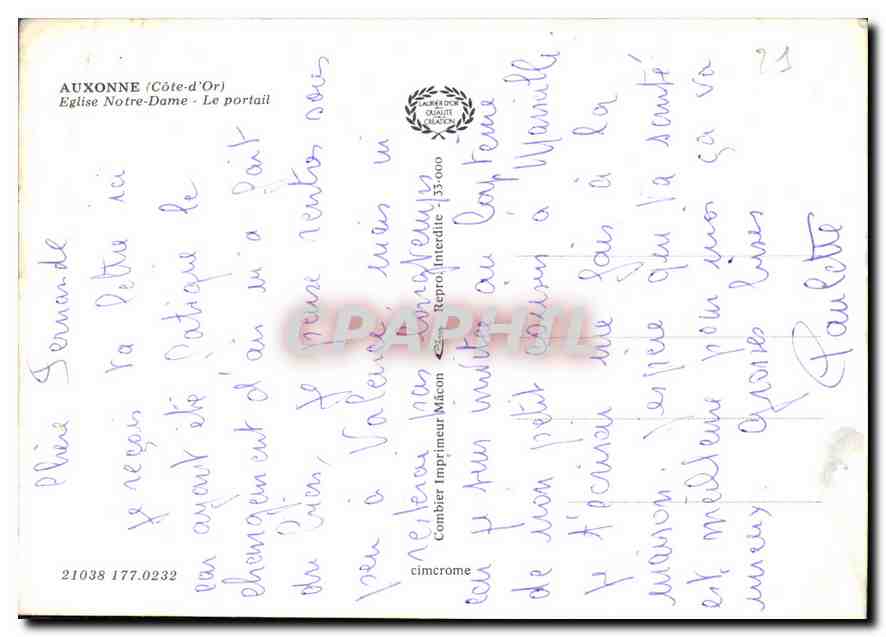 AUXONNE (Côte-d'Or)
Eglise Notre-Dame - Le portail
LAURIER D'OR
QUALITÉ
CRÉATION
21
Combier Imprimeur Mâcon Repro. Interdite - 33-000
21038 177.0232
cimcrome
CPAPHIL
Chère Fernande
Je reçois ta lettre ici
car ayant été fatiguée le
changement d'air m'a fait
du bien, Je pense rentrer sous
peu à Valence, mais n'y
resterai pas longtemps
car je suis invitée au baptême
de mon petit cousin à Marseille
Je t'écrirai une fois à la
maison j'espère que ta santé
est meilleure pour moi ça va
mieux. grosses bises
Paulette